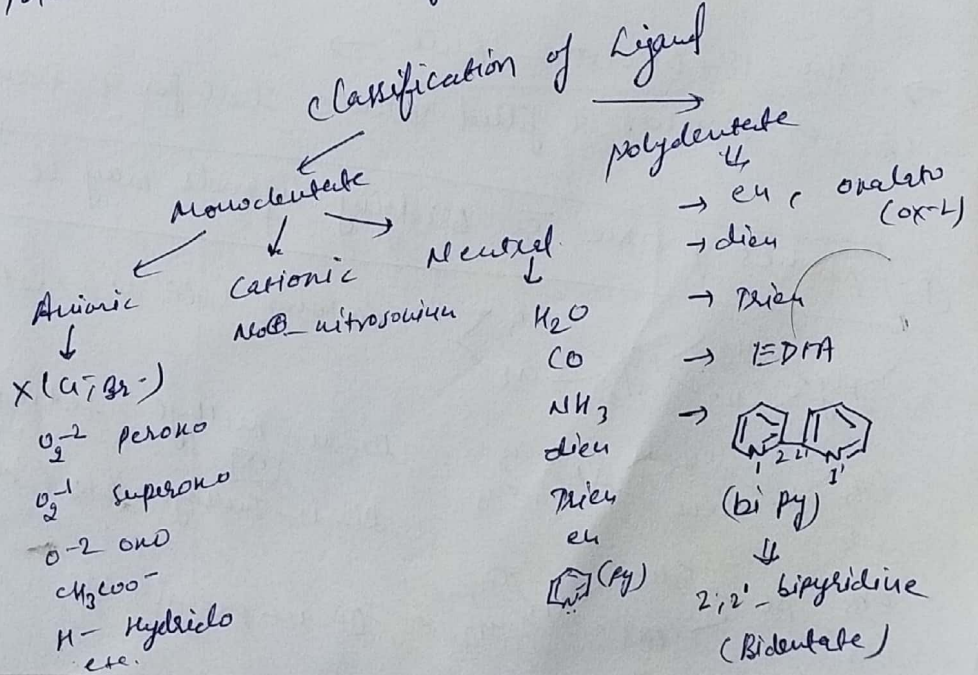 Classification of Ligand
Monodentate
Anionic
X (Cl-, Br-)
O2-2 peroxo
O2-1 superoxo
O-2 oxo
CH3COO-
H- Hydrido
etc.
Cationic
NO⊕ - nitrosonium
Neutral
H2O
CO
NH3
dien
Trien
en
(Py)
polydentate
→ en, oxalato
(ox-2)
→ dien
→ Trien
→ EDTA
→
1 2 2' 1'
(bi py)
2,2'-bipyridine
(Bidentate)